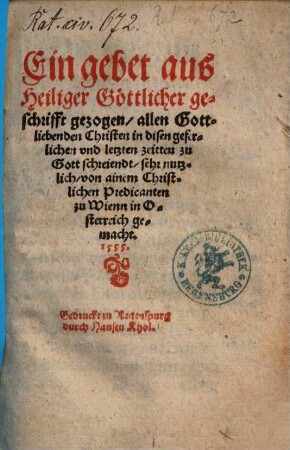 Rat. civ. 672.
Ein gebet aus
Heiliger Göttlicher ge-
schrifft gezogen/ allen Gott-
liebenden Christen in disen gefer-
lichen vnd letzten zeitten zu
Gott schreiendt/ sehr nutz-
lich/ von ainem Christ-
lichen Predicanten
zu Wienn in O-
sterreich ge-
macht.
1555.
Gedruckt zu Regenspurg
durch Hansen Khol.
REGENSBURG